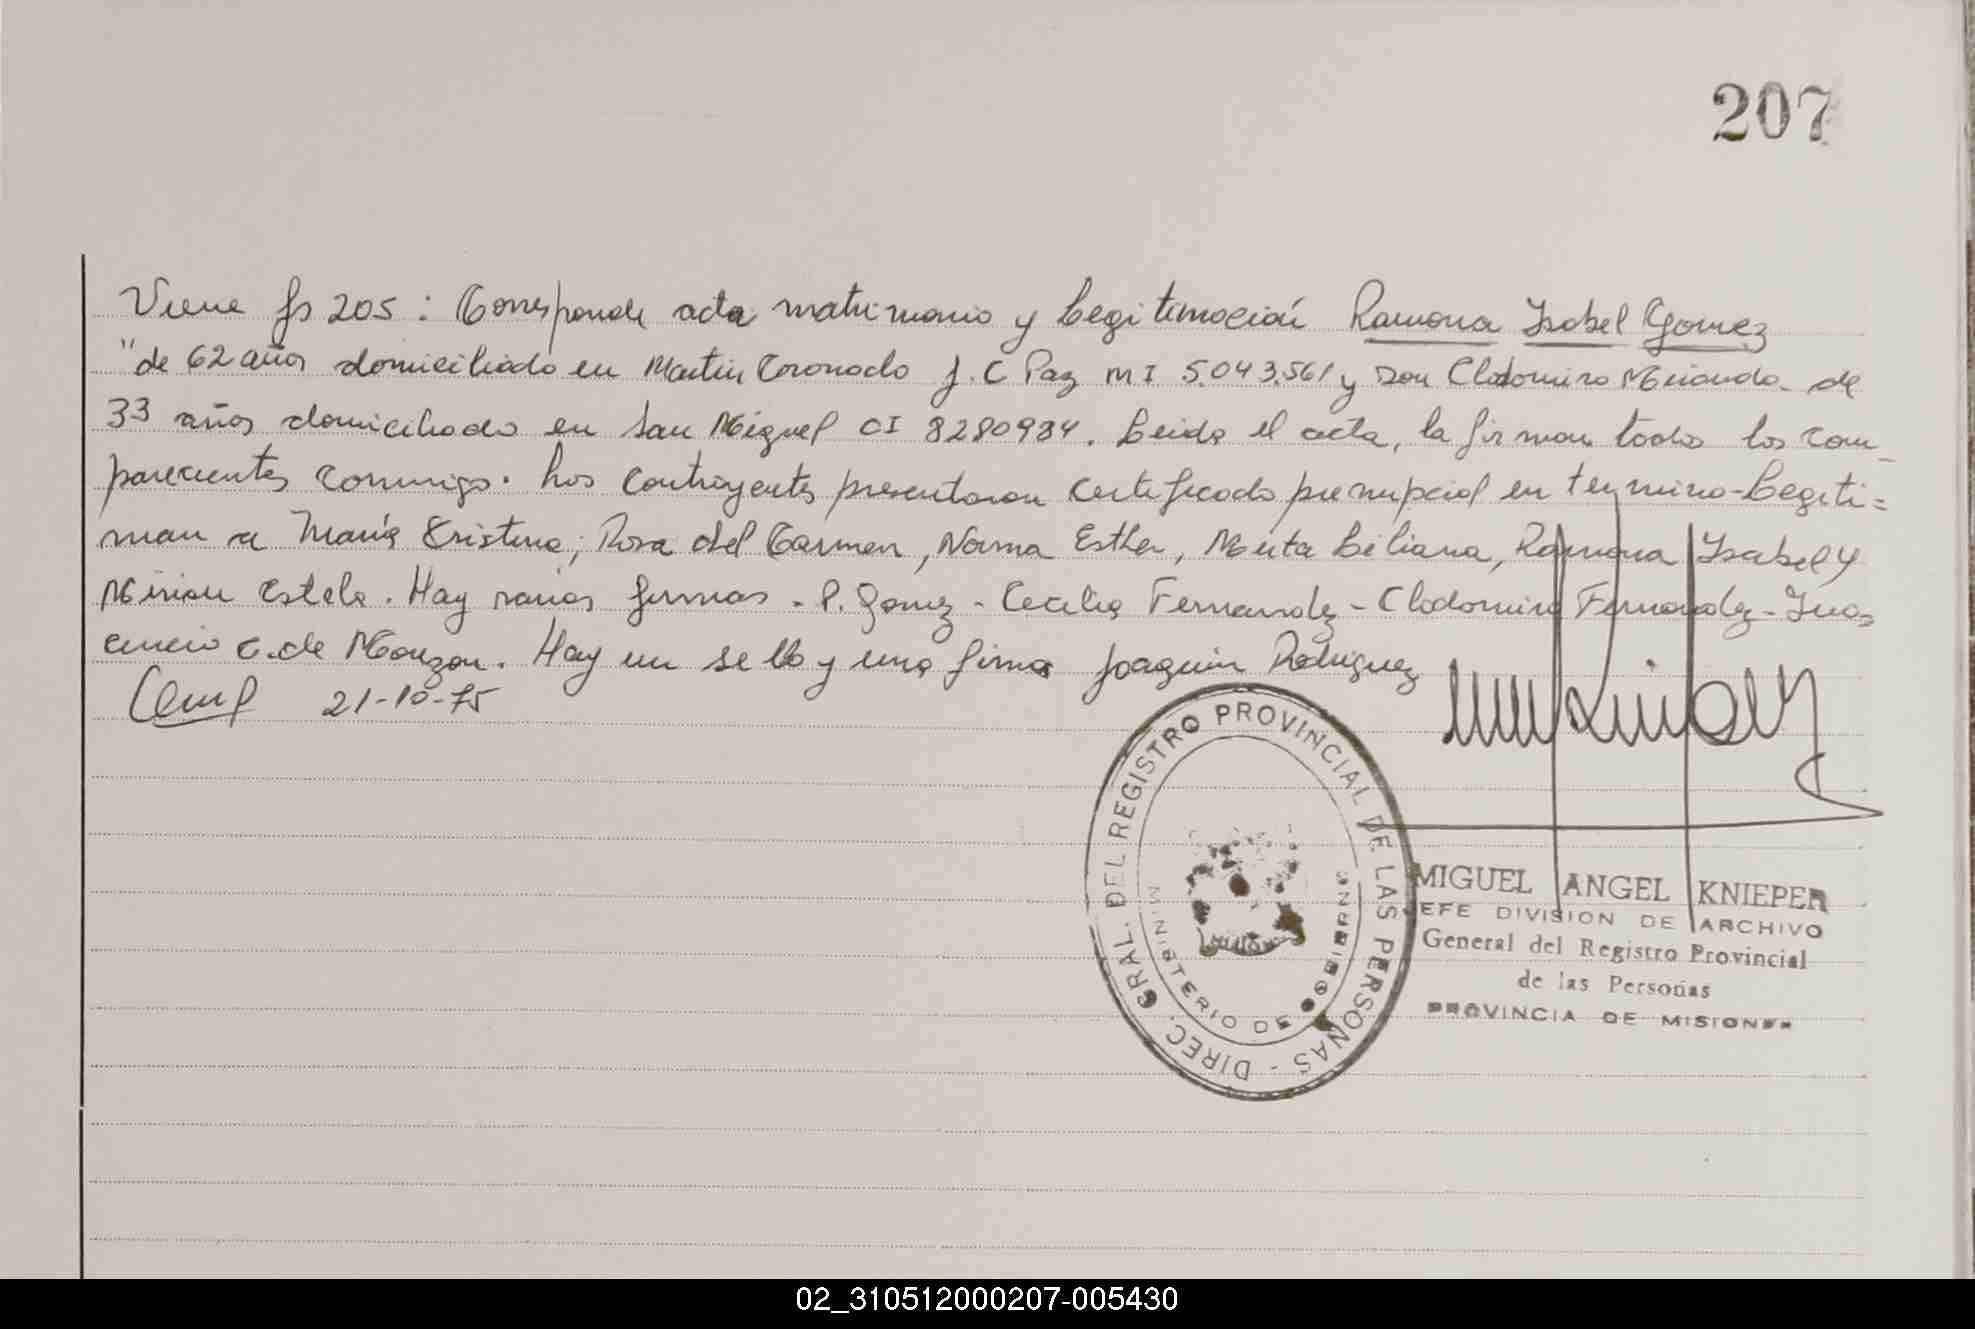 207
Viene fs 205: Corresponde acta matrimonio y Legitimación Ramona Isabel Gomez
"de 62 años domiciliado en Martin Coronado J. C Paz MI 5.043.561 y Don Clodomiro Miranda. de
33 años domiciliado en San Miguel CI 8280984. Leida el acta, la firman todos los com_
parecientes conmigo. Los contrayentes presentaron certificado prenupcial en termino-Legiti=
man a María Cristina, Rosa del Carmen, Norma Esther, Mirta Liliana, Ramona Isabel y
Mirian Estela. Hay varias firmas. P. Gomez - Cecilia Fernandez - Clodomiro Fernandez - Ino=
cencio C. de Monzon. Hay un sello y una firma Joaquin Rodriguez
21-10-75
DIREC. GRAL. DEL REGISTRO PROVINCIAL DE LAS PERSONAS -
MINISTERIO DE GOBIERNO
MIGUEL ANGEL KNIEPER
JEFE DIVISION DE ARCHIVO
General del Registro Provincial
de las Personas
PROVINCIA DE MISIONES
02_310512000207-005430